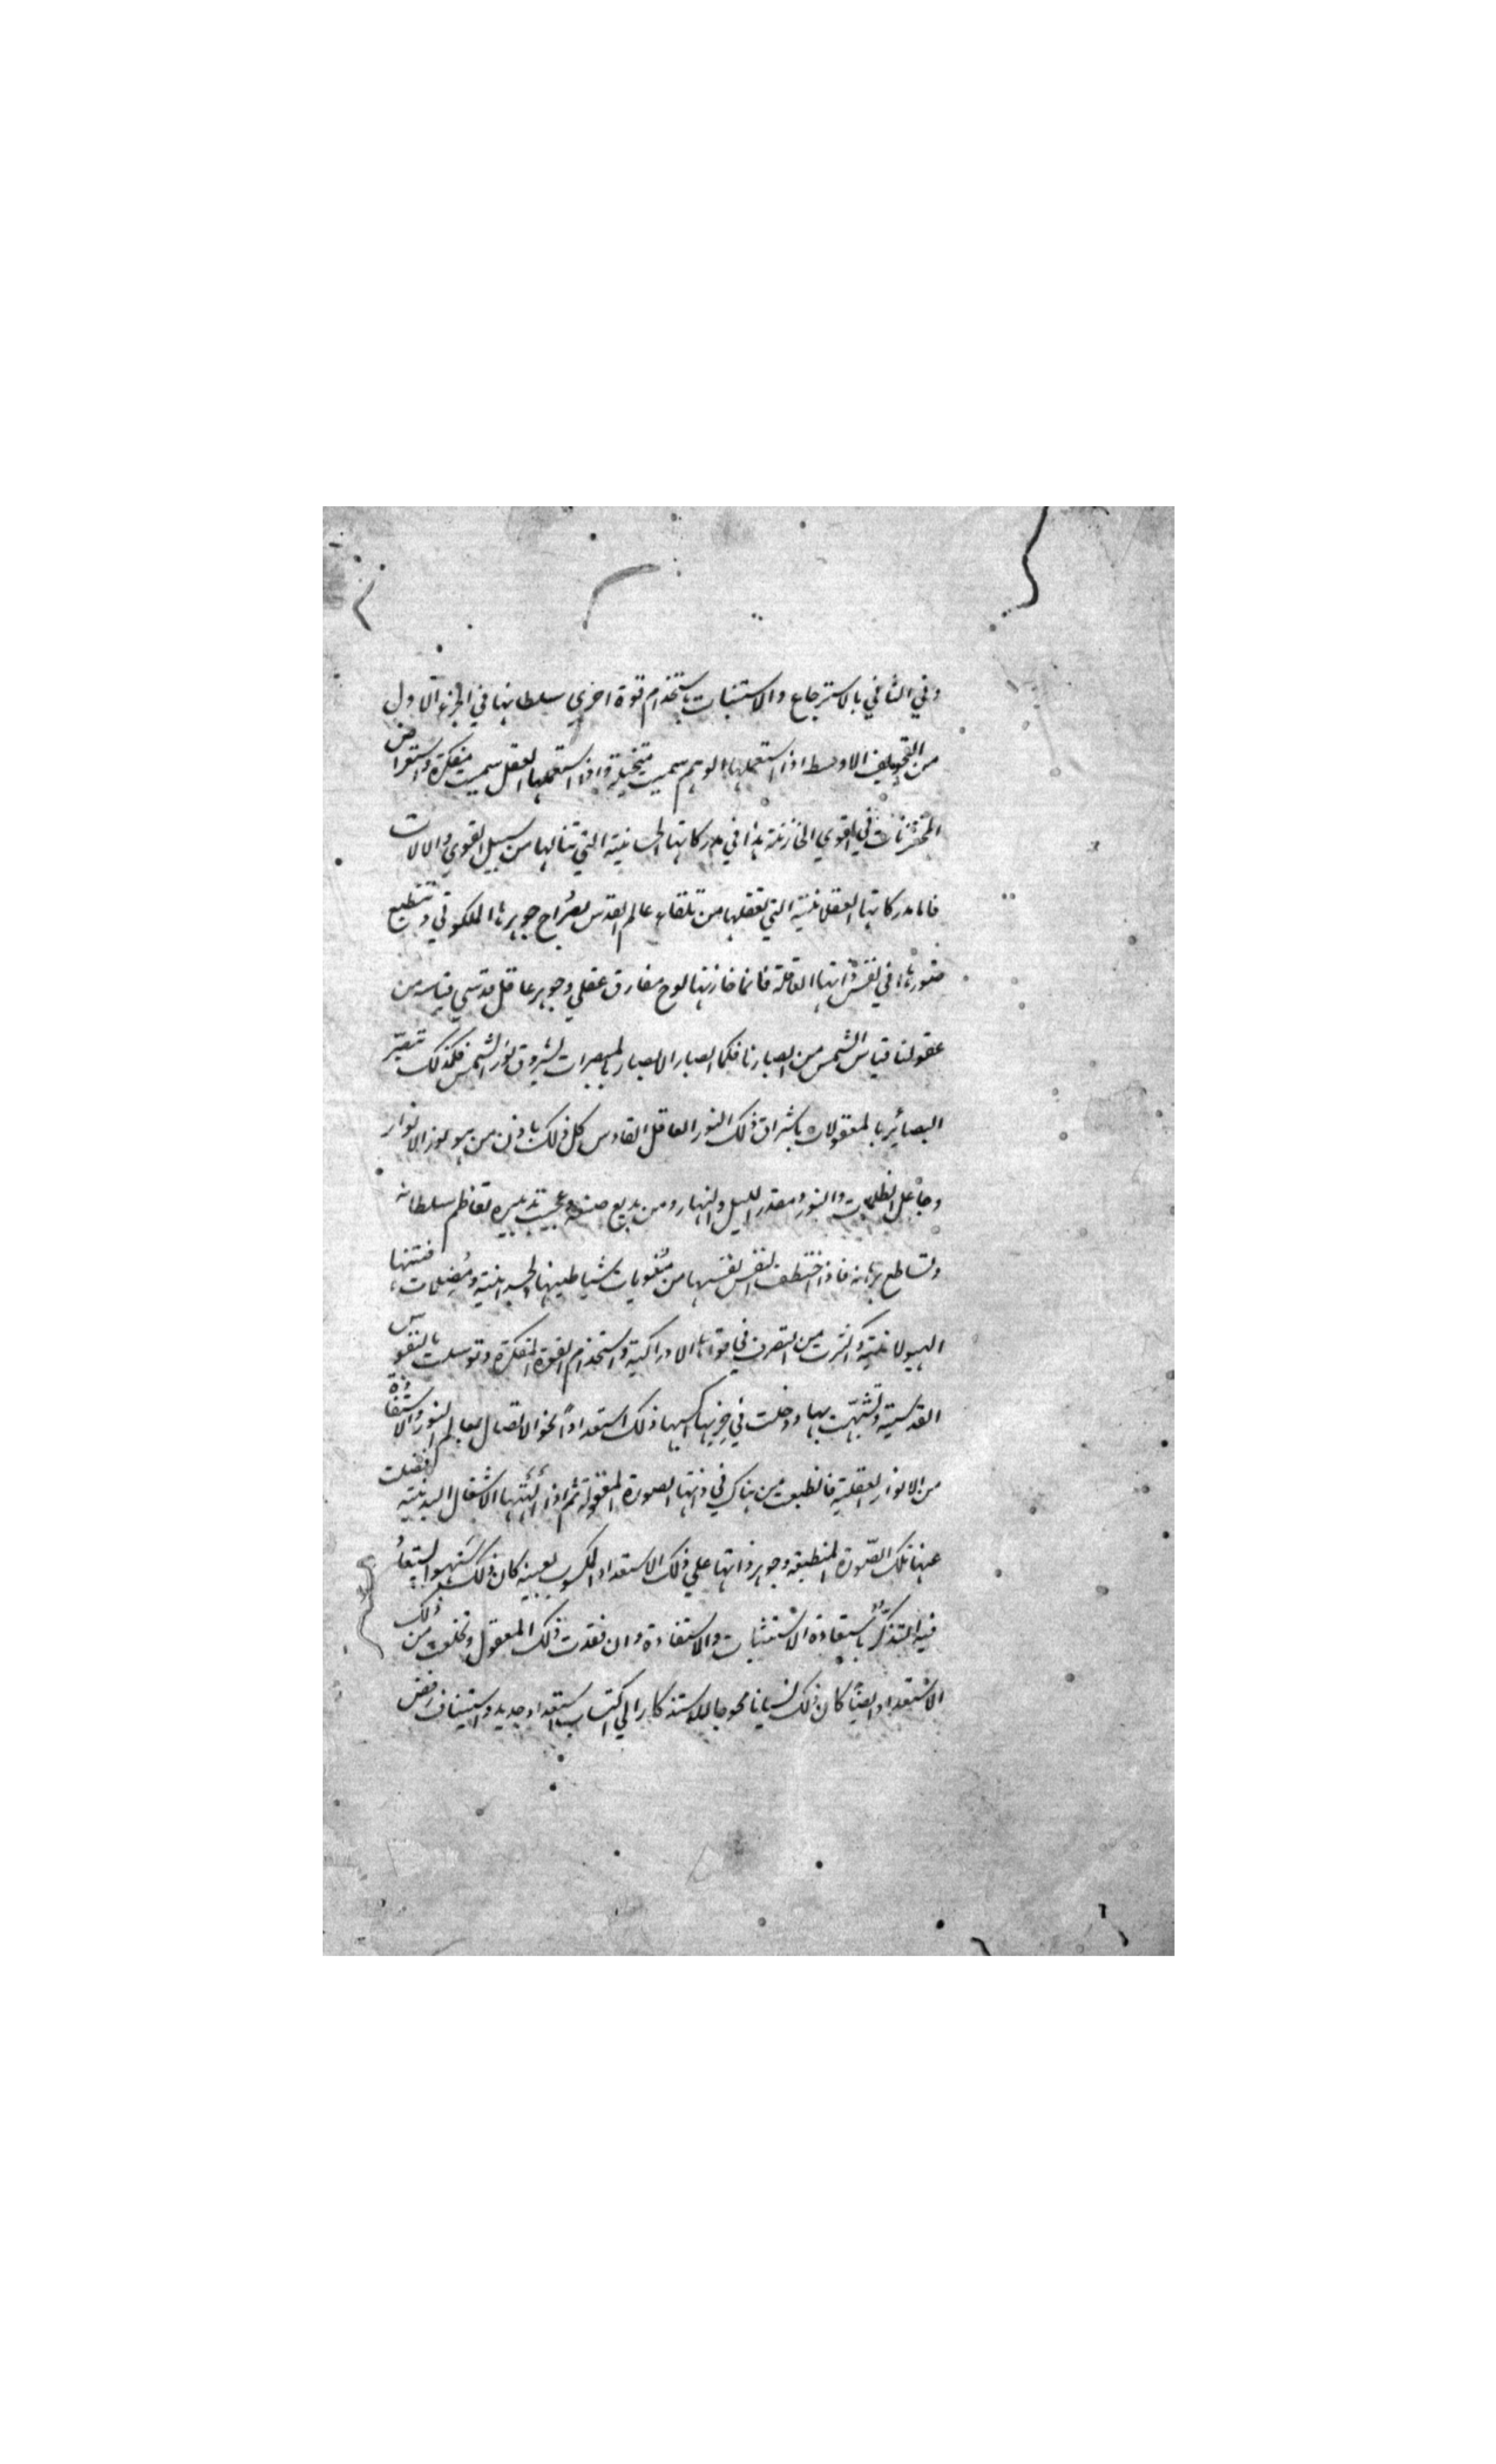 وفي الثاني بالاسترجاع والاستثبات باستخدام قوة اخري سلطانها في الجزء الاول
من التجويف الاوسط اذا استعملها الوهم سميت متخيلة واذا استعملها العقل سميت مفكرة واستعراض
المختزنات في القوي الخازنة هذا في مدركاتها الجسمانية التي تنالها من سبيل القوي والالات
فاما مدركاتها العقلانية التي تعقلها من تلقاء عالم القدس بصراح جوهرها الملكوتي وتنطبع
صورها في نفس ذاتها العاقلة فانما خازنها لوح مفارق عقلي وجوهر عاقل قدسي قياسه من
عقولنا قياس الشمس من ابصارنا فكما ابصار الابصار بالمبصرات بشروق نور الشمس فكذلك تبصر
البصائر بالمعقولات باشراق ذلك النور العاقل القادس كل ذلك باذن من هو نور الانوار
وجاعل الظلمات والنور ومقدر الليل والنهار ومن بديع صنعه وعجيب تدبيره تعاظم سلطانه
وتساطع برهانه فاذا اختطفت النفس نفسها من مغويات شياطينها الجسدانية ومضلات فتنها
الهيولانية واكثرت من التصرف في قواها الادراكية واستخدام القوة المتفكرة وتوسلت بالنفوس
القدسية وتشبهت بها ودخلت في حزبها اكسبها ذلك استعدادا نحو الاتصال بعالم النور والاستفاضة
من الانوار العقلية فانطبعت من هناك في ذاتها الصورة المعقولة ثم اذا الهتها الاشغال البدنية فضلت
عنها تلك الصورة المنطبعة وجوهر ذاتها علي ذلك الاستعداد المكسوب بعينه كان ذلك سهوا يستعاد
فيه التذكر باستعادة الاستثبات والاستفادة وان فقدت ذلك المعقول وتخلعت من ذلك
الاستعداد ايضا كان ذلك نسيانا محوجا للاستذكار الي اكتساب استعداد جديد واستيناف رفض